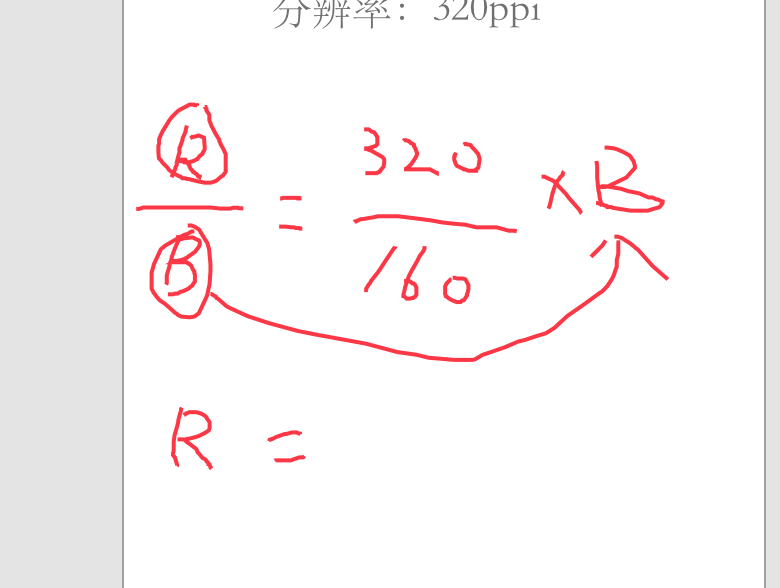 分辨率：320ppi
R/B = 320/160 × B
R =